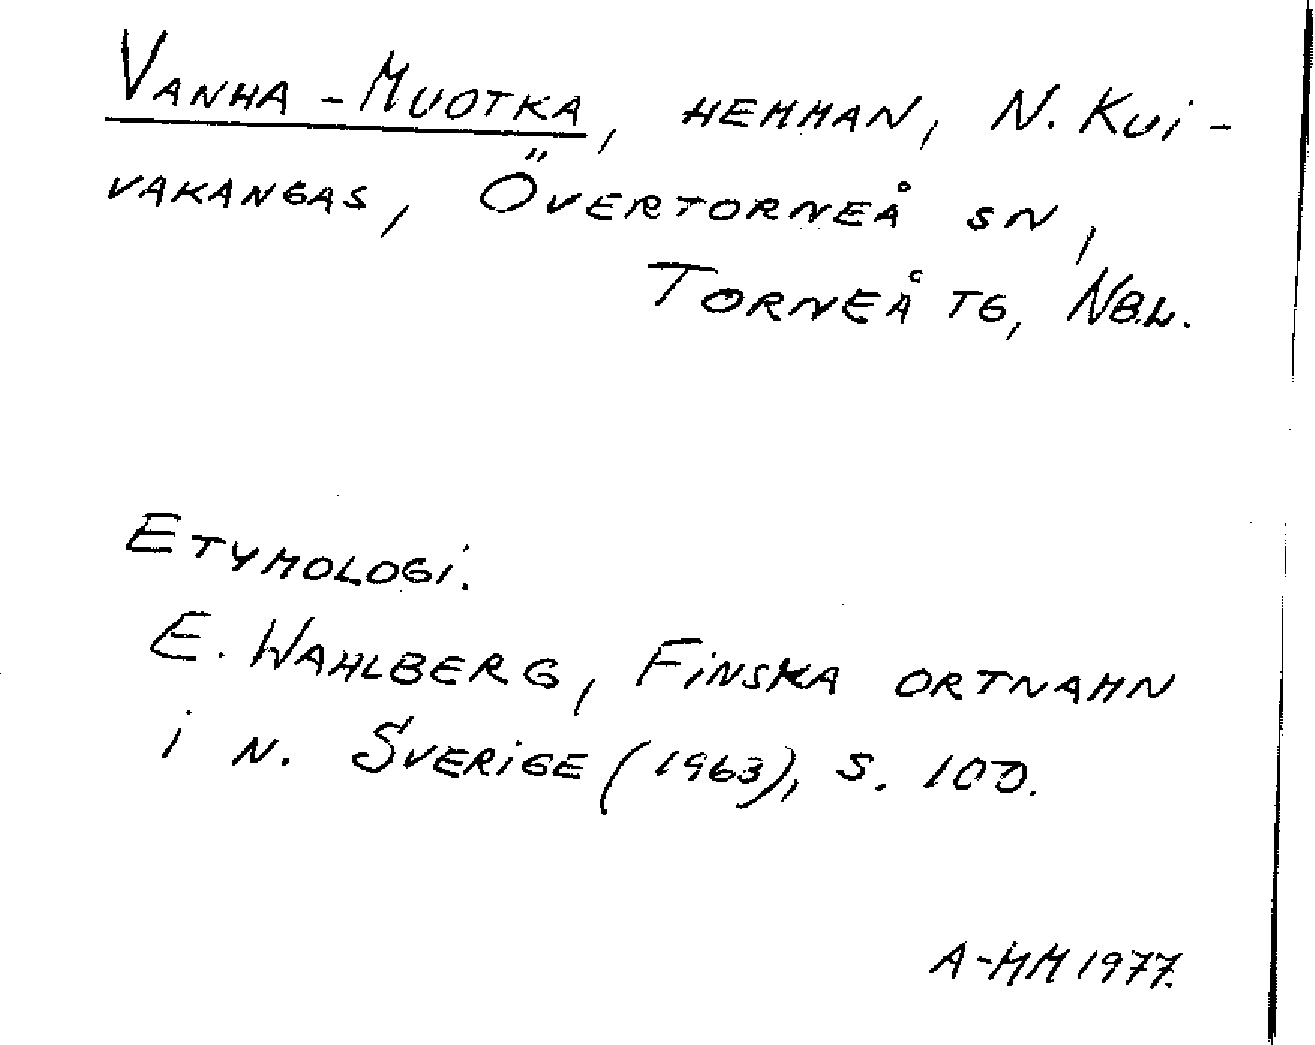 VANHA-MUOTKA, HEMMAN, N. KUI-
VAKANGAS, ÖVERTORNEÅ SN,
TORNEÅ TG, NB.L.
ETYMOLOGI.
E. WAHLBERG, FINSKA ORTNAMN
I N. SVERIGE (1963), S. 100.
A-MM 1977.